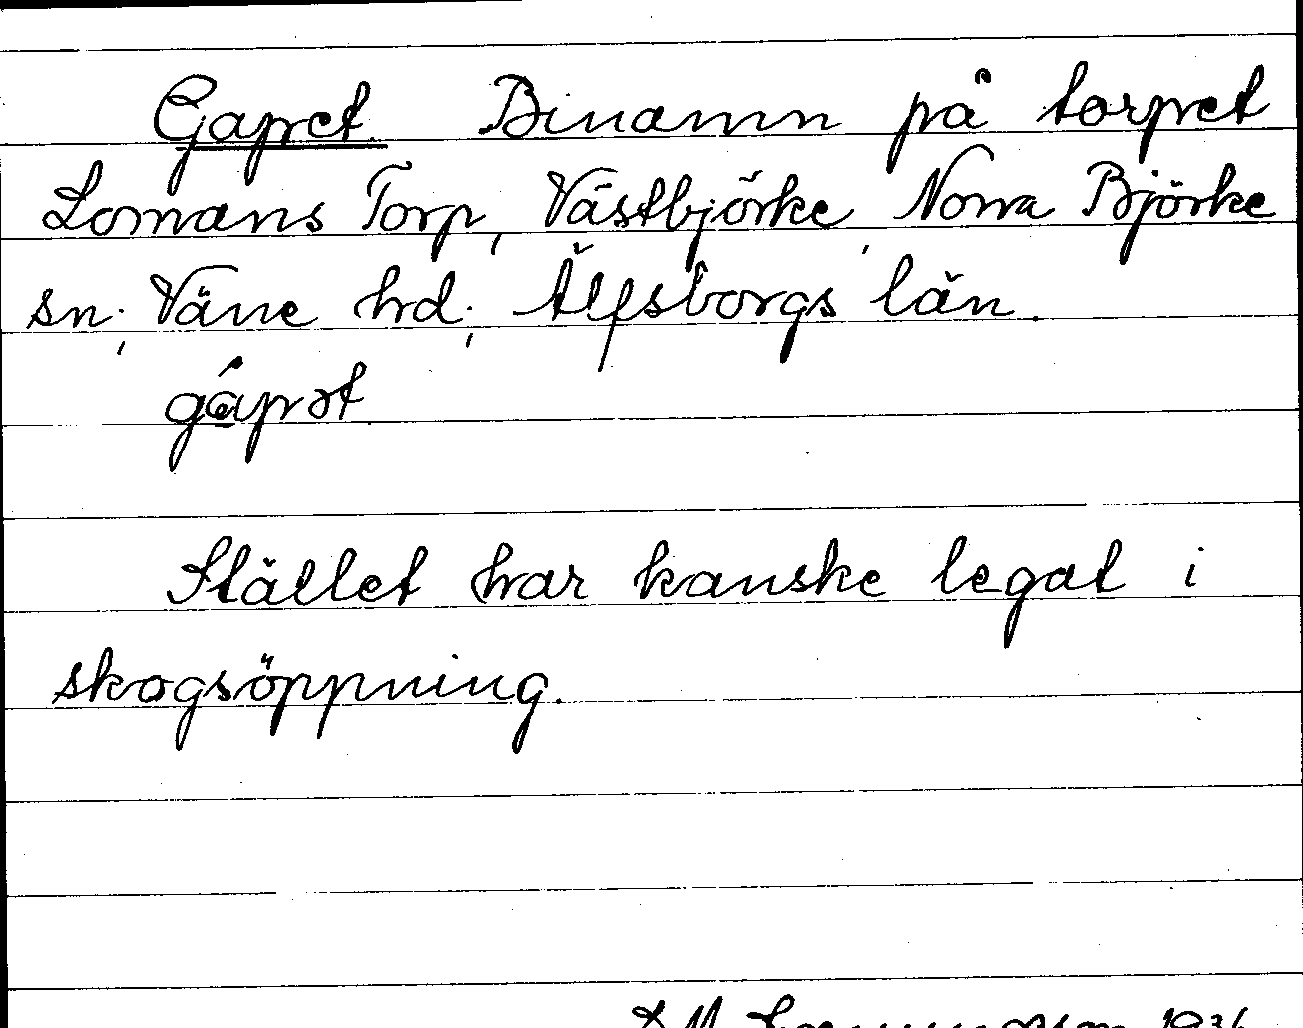 Gapet Binamn på torpet
Lomans Torp, Västbjörke, Norra Björke
sn., Väne hd., Älfsborgs län.
gápət
Stället har kanske legat i
skogsöppning.
1936